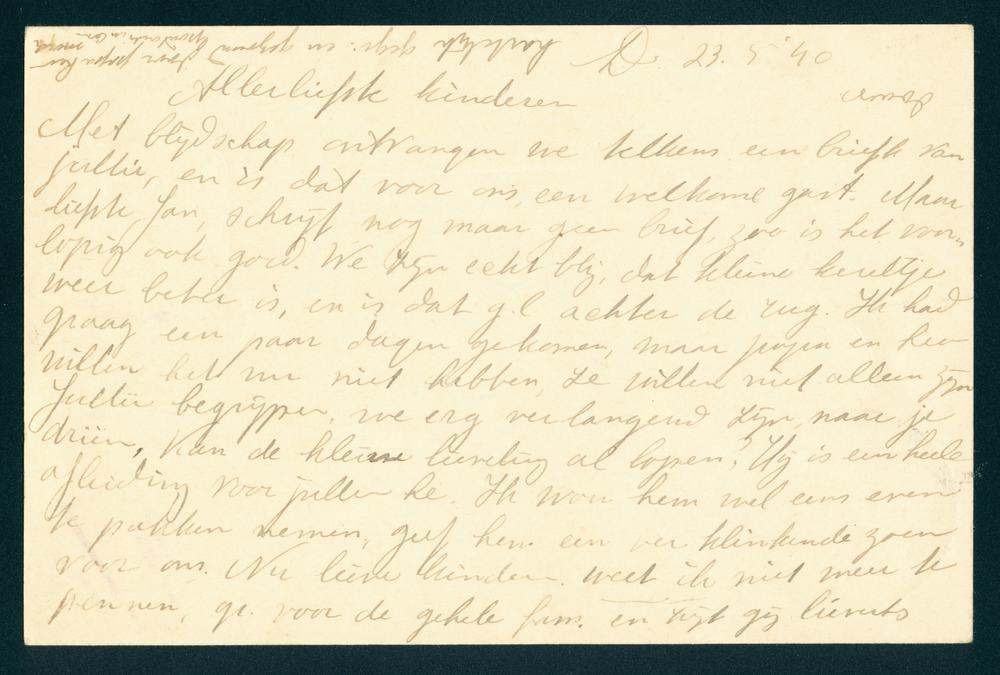 D. 23.5.'40
Allerliefste kinderen
Met blijdschap ontvangen we telkens een briefje van
jullie, en is dat voor ons, een welkome gast. Maar
liefste Jan, schrijf nog maar geen brief, zoo is het voor„
lopig ook goed. We zijn echt blij, dat kleine kereltje
weer beter is, en is dat g.l achter de rug. Ik had
graag een paar dagen gekomen, maar papa en
willen het nu niet hebben, ze willen niet alleen zijn
Jullie begrijpen, we erg verlangend zijn, naar je
drieën, kan de kleine lieveling al lopen? Hij is een heele
afleiding voor jullie he. Ik wou hem wel eens even
te pakken nemen, geef hem een ver klinkende zoen
voor ons. Nu lieve kinderen weet ik niet meer te
pennen, gr. voor de gehele fam. en zijt gij lieverts
hartelijk gegr. en gezoend